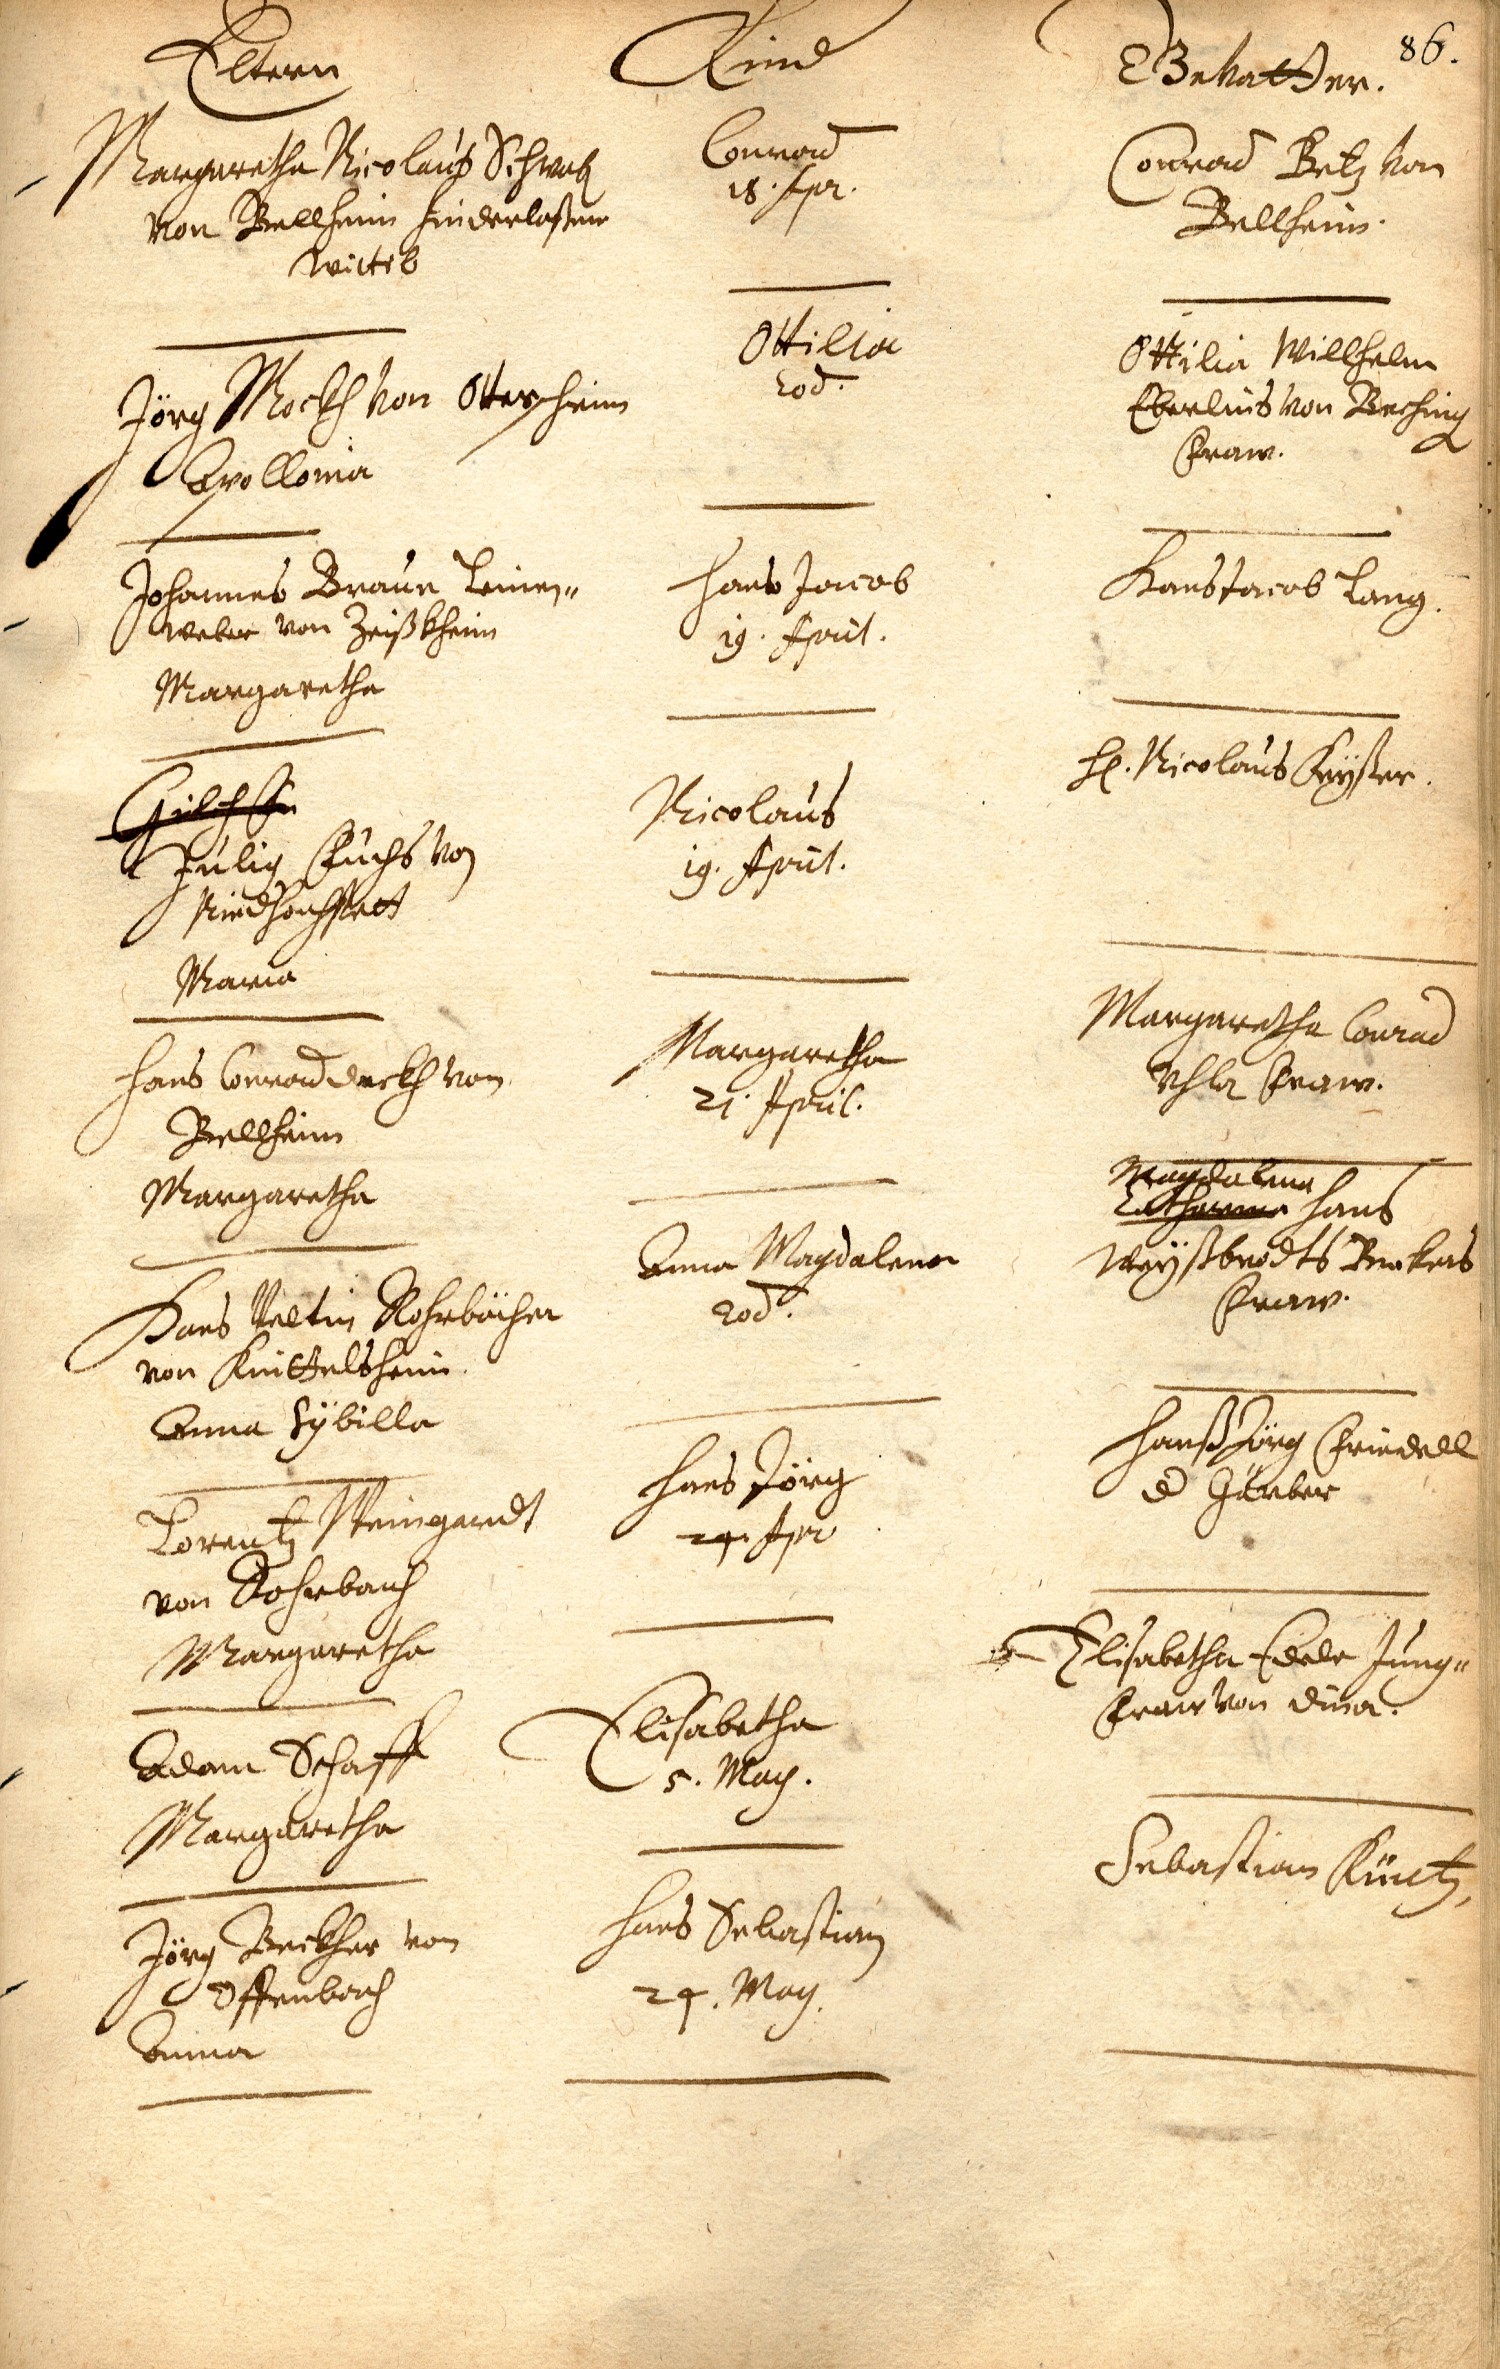 86.
Eltern
Kind
Gevatter.
Margaretha Nicolaus Schwab
von Bellheim hinderlaßene
Wittib
Conrad
18. Apr.
Conrad Betz von
Bellheim.
Jörg Mockh von Ottersheim
Apollonia
Ottilia
eod.
Ottilia Willhelm
Eberlins von
Fraw.
Johannes Braun Leinen„
weber von Zeißkheim
Margaretha
Hans Jacob
19. April.
Hans Jacob Lang.
Gilch
Julig Fuchs von
Niedhochstatt
Maria
Nicolaus
19. April.
H. Nicolaus Keyßer.
Hans Conrad von
Bellheim
Margaretha
Margaretha
21. April.
Margaretha Conrad
Fraw.
Hans Veltin Rohrbächer
von Knittelsheim.
Anna Sybilla
Anna Magdalena
eod.
Magdalena
Catharina Hans
Weyßbrodts Beckers
Fraw.
Lorentz Weingardt
von Rohrbach
Margaretha
Hans Jörg
24. Apr
Hanß Jörg Friedell
d Gärber
Adam Schaff
Margaretha
Elisabetha
5. May.
Elisabetha Edele Jung„
Fraw von
Jörg Beckher von
Offenbach
Anna
Hans Sebastian
24. May.
Sebastian Küntz,